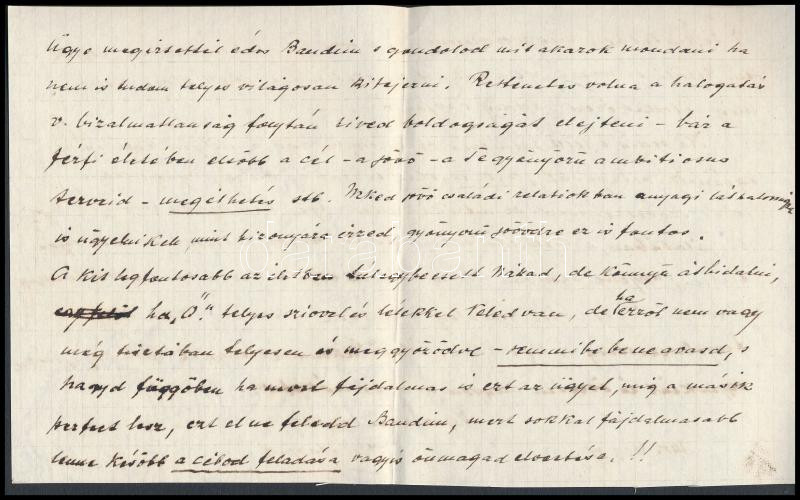 Ugye megértettél édes Bandim s gondolod mit akarok mondani ha
nem is tudom teljes világosan kifejezni. Rettenetes volna a halogatás
v. bizalmatlanság folytán szived boldogságát elejteni – bár a
férfi életében előbb a cél – a jövő – a Te gyönyörü ambitiosus
terveid – megélhetés stb. Neked jövő családi relatiokban anyagi
is ügyelni kell, mint bizonyára érzed, gyönyörü jövődre ez is fontos.
A kis legfontosabb az életben Nálad, de könnyü áthidalni,
ha „Ő" teljes szivvel és lélekkel Veled van, de ha erről nem vagy
még tisztában teljesen és meggyőződve – semmibe bene ugrasd, s
hagyd függőben ha most fájdalmas is ezt az ügyet, mig a másik
perfect lesz, ezt el ne feledd Bandim, mert sokkal fájdalmasabb
lenne később a célod feladása vagyis önmagad elvesztése. !!